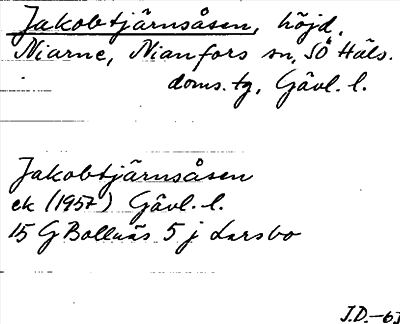 Jakobtjärnsåsen, höjd,
Niarne, Nianfors sn, SÖ Häls.
doms.tg, Gävl. l.
Jakobtjärnsåsen
ek (1957) Gävl. l.
15 G Bollnäs 5 j Larsbo
J.D.-63